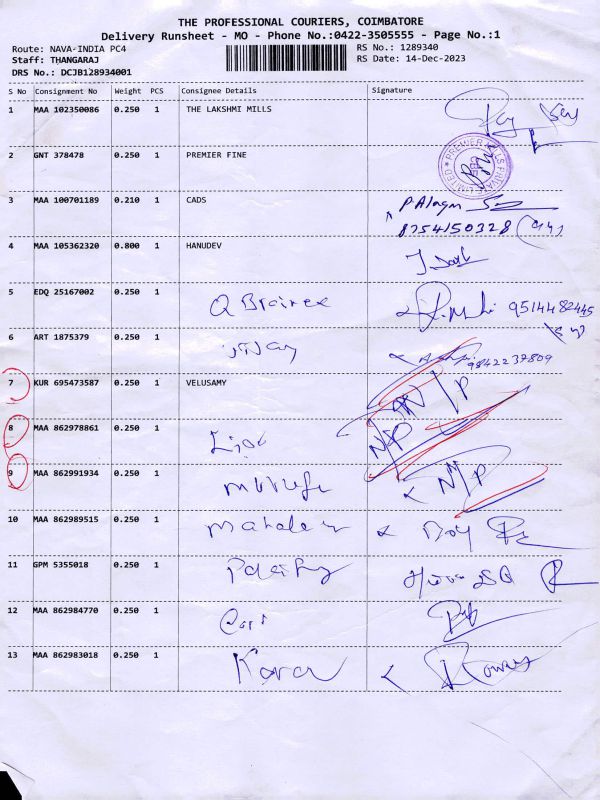 THE PROFESSIONAL COURIERS, COIMBATORE
Delivery Runsheet - MO - Phone No.:0422-3505555 - Page No.:1
Route: NAVA-INDIA PC4 RS No.: 1289340
Staff: THANGARAJ RS Date: 14-Dec-2023
DRS No.: DCJB128934001
S No Consignment No Weight PCS Consignee Details Signature
1 MAA 102350086 0.250 1 THE LAKSHMI MILLS
2 GNT 378478 0.250 1 PREMIER FINE
PREMIER MILLS PRIVATE LIMITED
3 MAA 100701189 0.210 1 CADS P.Alagu
8754150328
4 MAA 105362320 0.800 1 HANUDEV
5 EDQ 25167002 0.250 1 Q Brainee 9514482445
6 ART 1875379 0.250 1 9842237809
7 KUR 695473587 0.250 1 VELUSAMY N/P
8 MAA 862978861 0.250 1 N/P
9 MAA 862991934 0.250 1 N/P
10 MAA 862989515 0.250 1
11 GPM 5355018 0.250 1
12 MAA 862984770 0.250 1
13 MAA 862983018 0.250 1